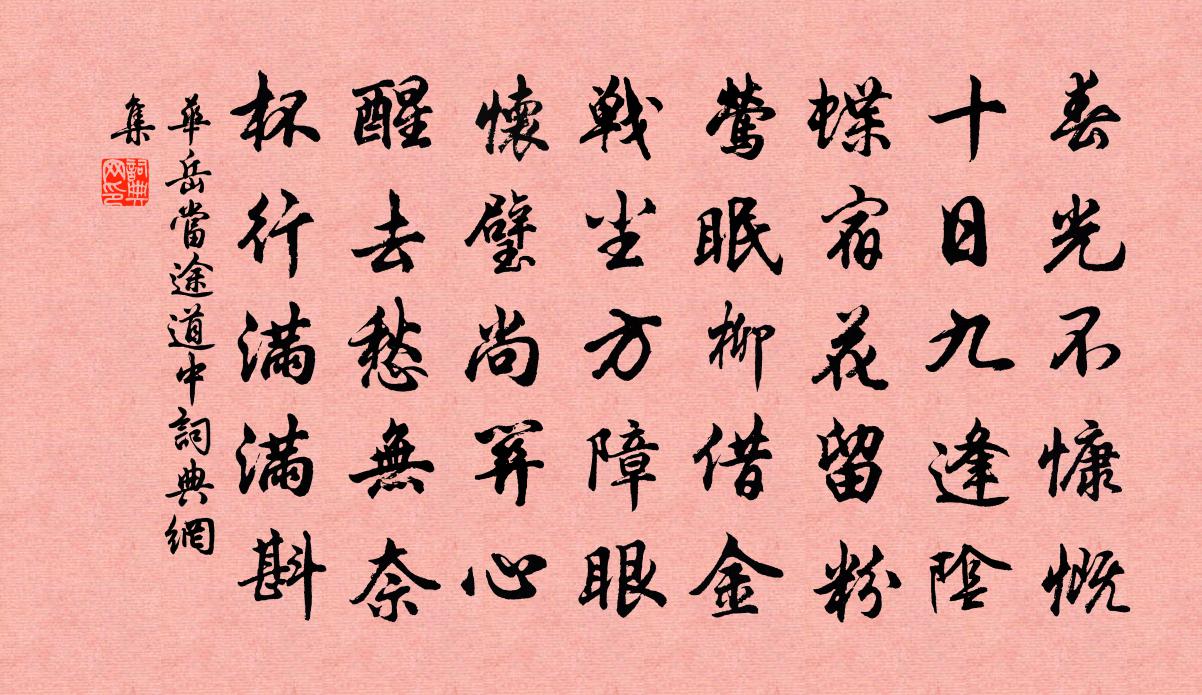 春光不慷慨
十日九逢陰
蝶宿花留粉
鶯眠柳借金
戰尘方障眼
懷璧尚關心
醒去愁無奈
杯行滿滿斟
華岳當途道中詞典網
集
詞典
网印